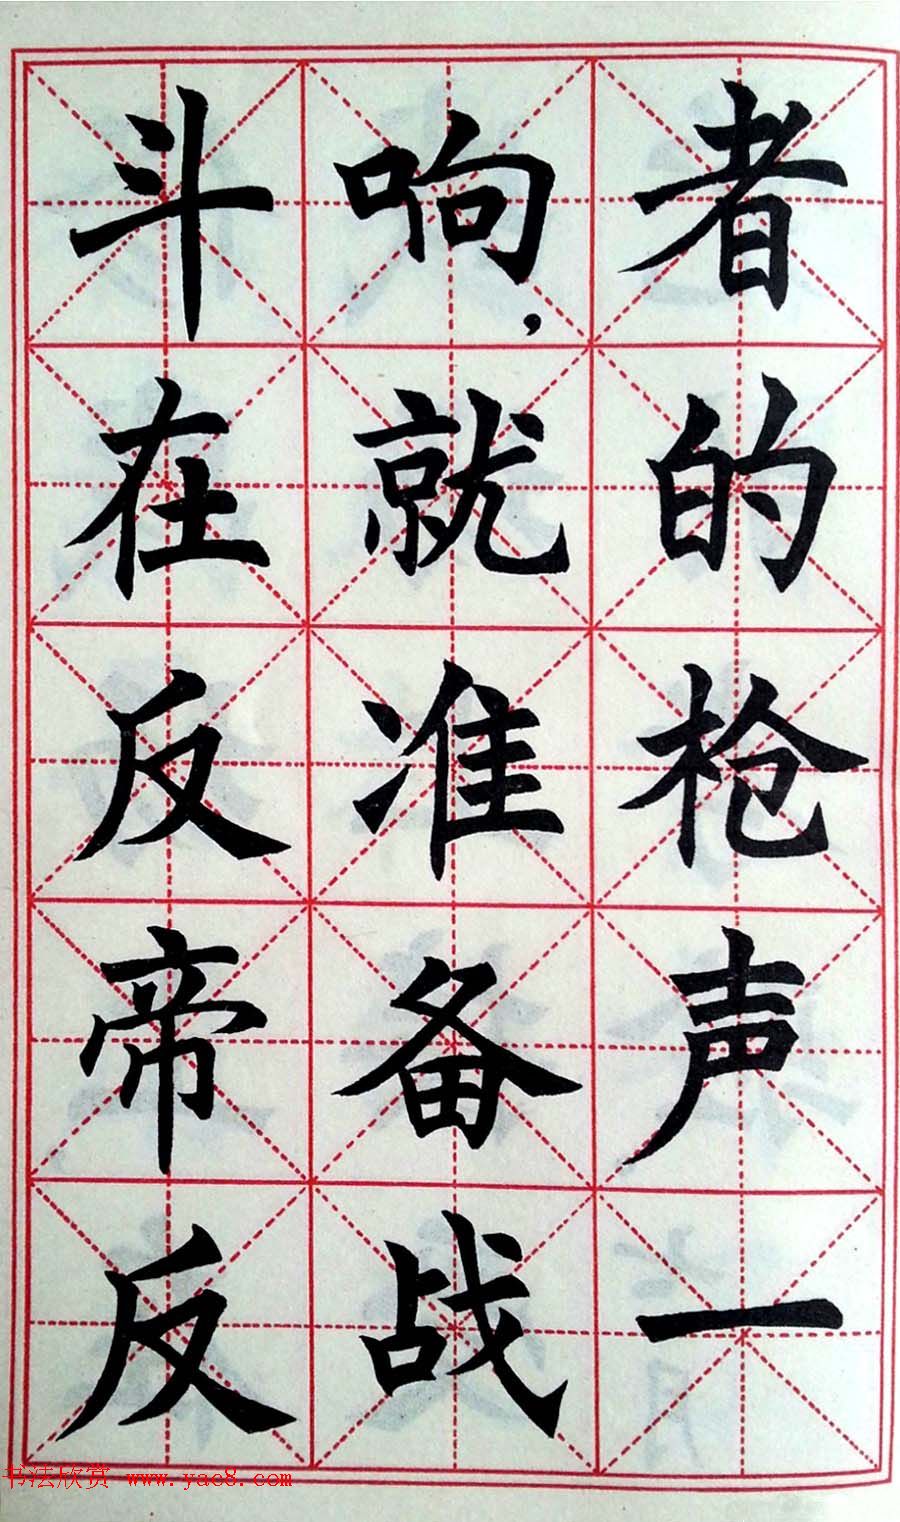 者的枪声一
响,就准备战
斗在反帝反
书法欣赏 www.yac8.com